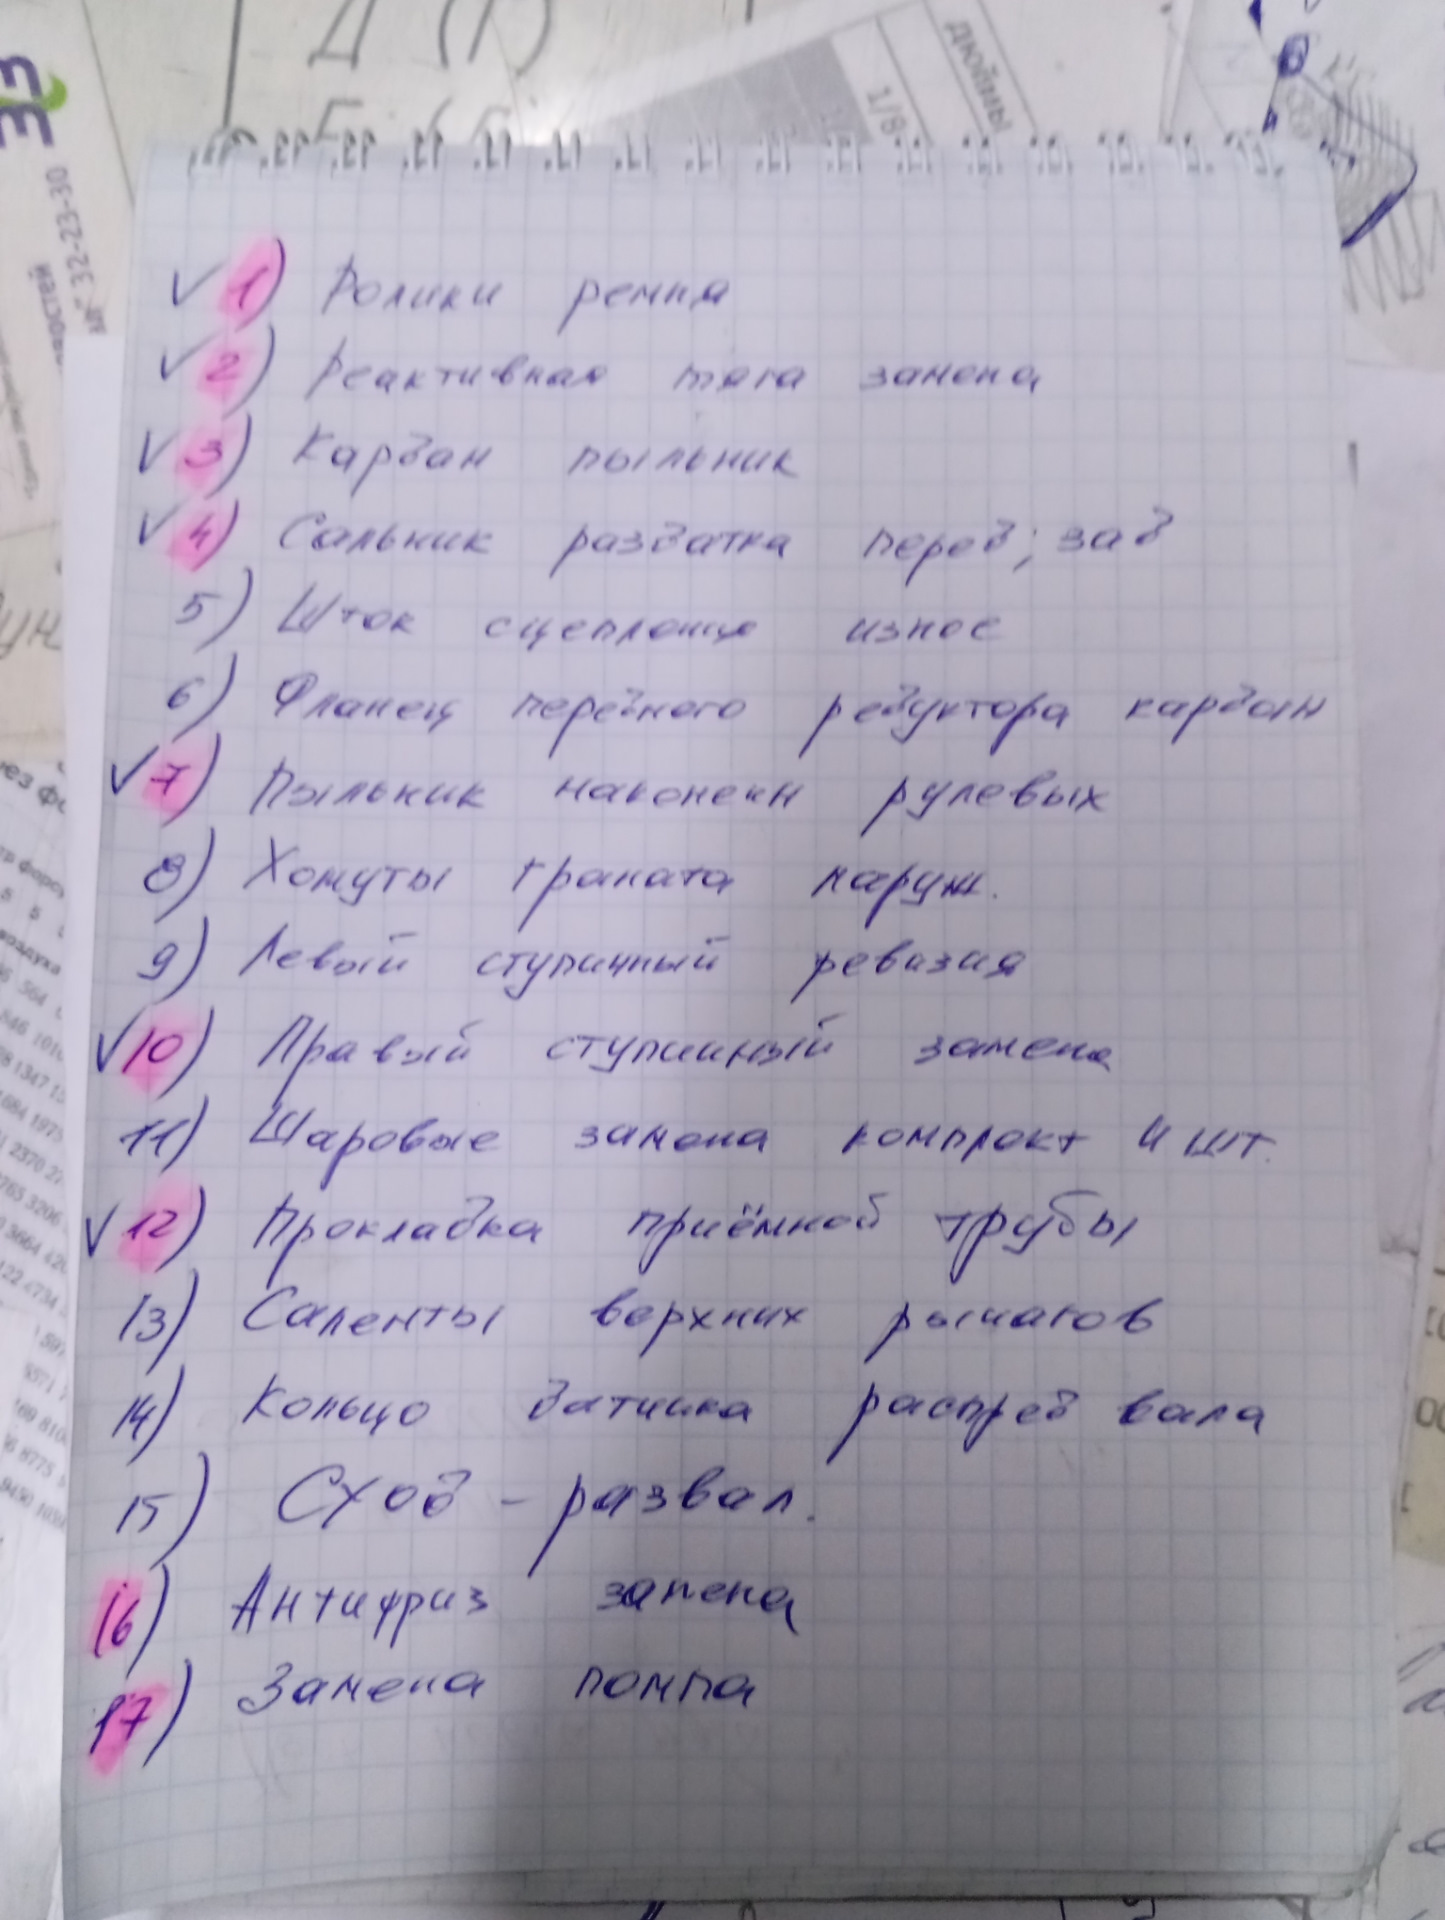 дюймы
1/8
32-23-30
✓ 1) Ролики ремня
✓ 2) Реактивная тяга замена
✓ 3) Кардан пыльник
✓ 4) Сальник раздатка перед; зад
5) Шток сцепления износ
6) Фланец переднего редуктора кардан
✓ 7) Пыльник наконечн рулевых
8) Хомуты граната наруж.
9) Левый ступичный ревизия
✓ 10) Правый ступичный замена
11) Шаровые замена комплект 4 шт.
✓ 12) Прокладка приёмной трубы
13) Саленты верхних рычагов
14) Кольцо датчика распред вала
15) Сход - развал.
16) Антифриз замена
17) Замена помпа